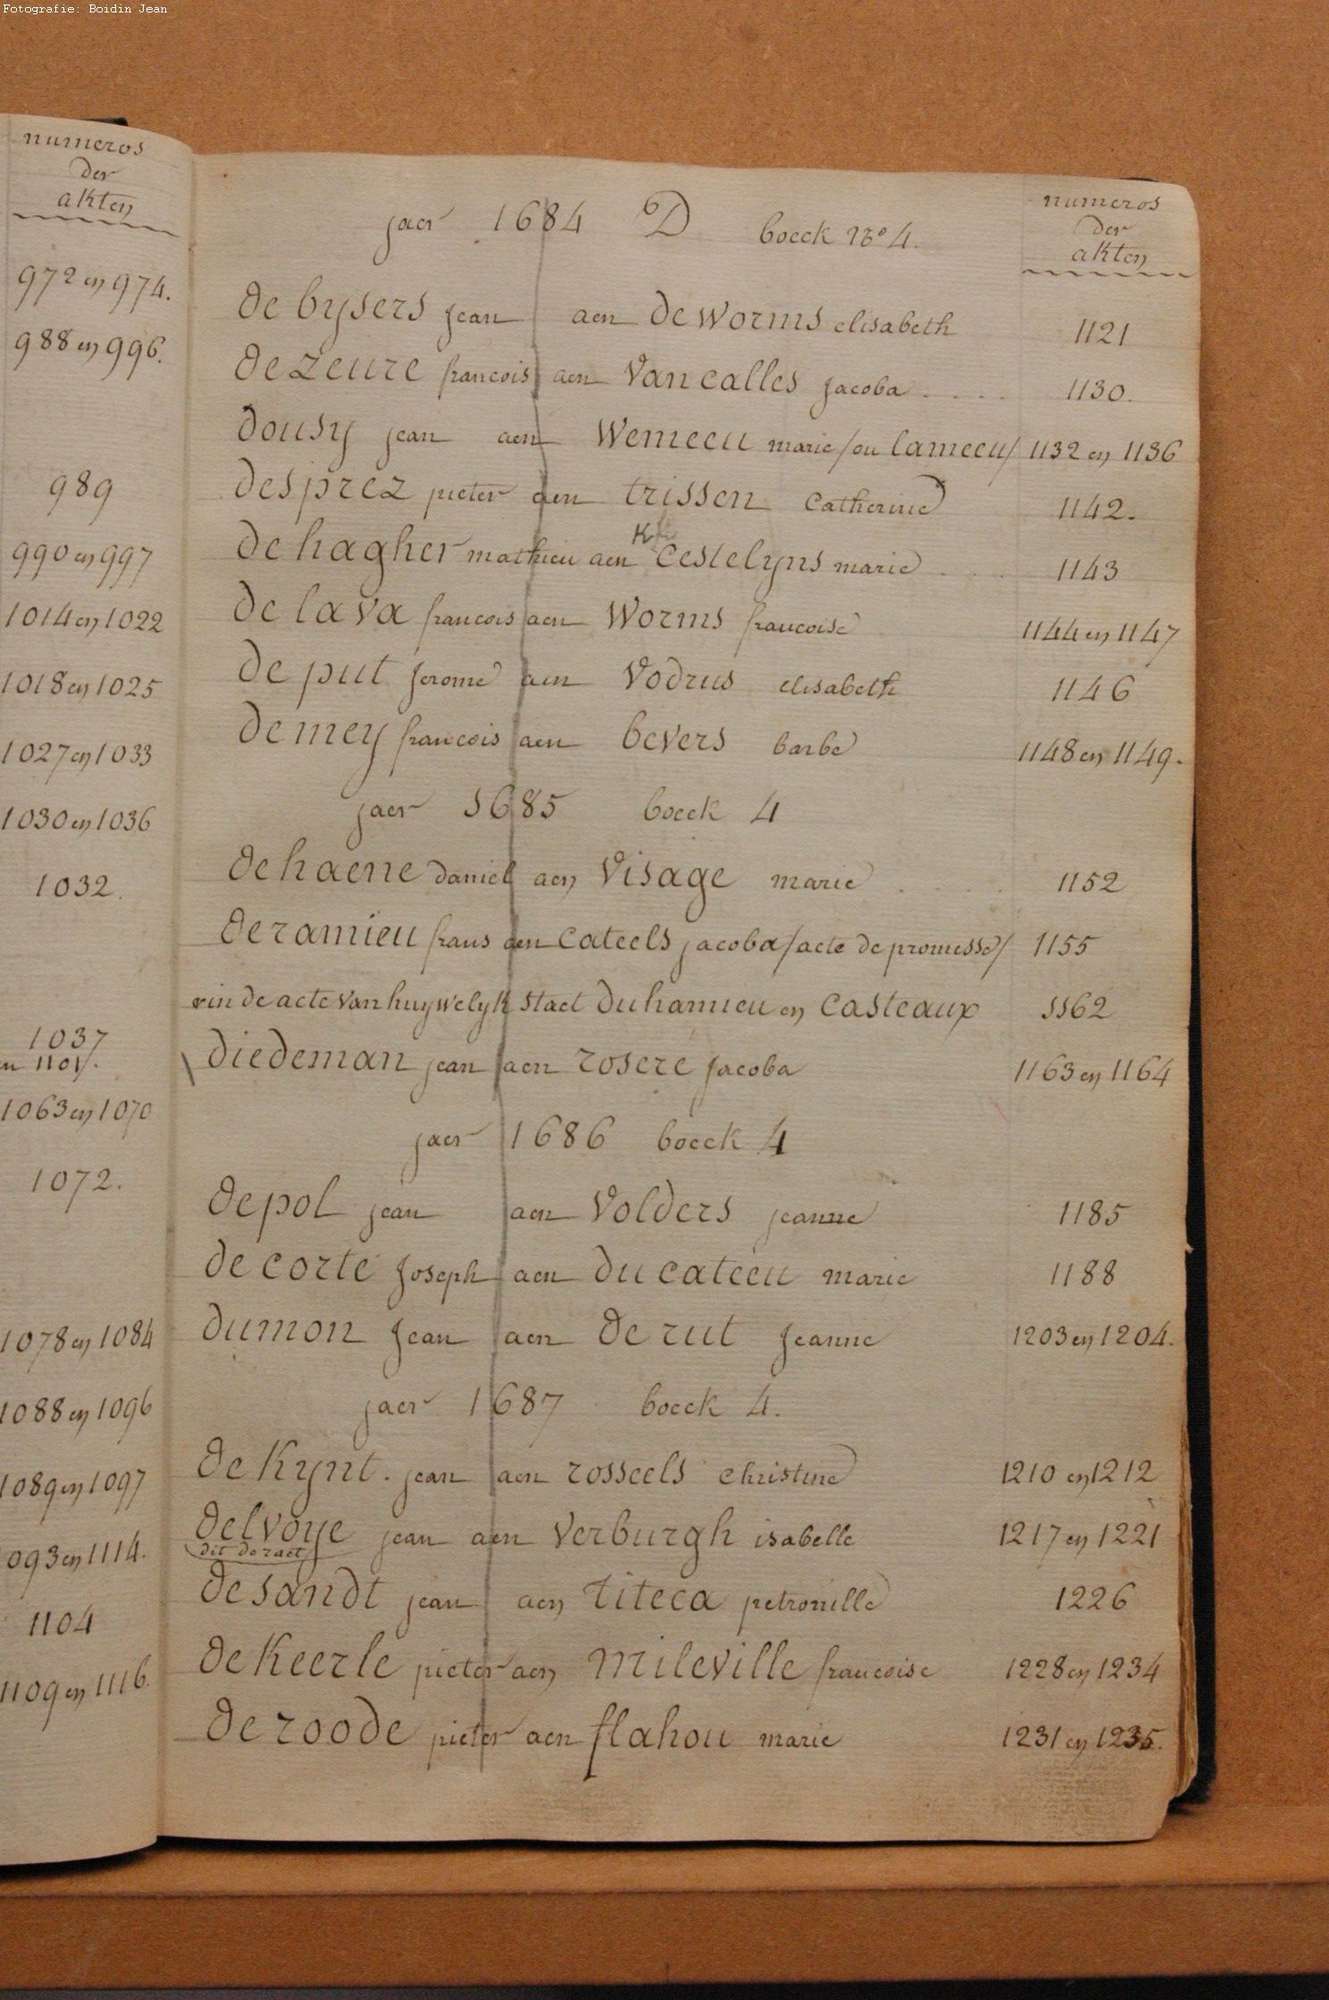 Fotografie: Boidin Jean
numeros
der
akten
972 en 974.
988 en 996.
989
990 en 997
1014 en 1022
1018 en 1025
1027 en 1033
1030 en 1036
1032.
1037
1063 en 1070
1072.
1078 en 1084
1088 en 1096
1089 en 1097
1093 en 1114.
1104
1109 en 1116.
jaer 1684 D boeck No 4.
numeros
der
akten
de bysers jean aen de worms elisabeth 1121
de zeure francois aen vancalles jacoba .... 1130.
dousy jean aen wemeeu marie /ou lameeu/ 1132 en 1136
desprez pieter aen trissen catherine 1142.
K
de hagher mathieu aen cestelyns marie .... 1143
de lava francois aen worms francoise 1144 en 1147
de put jerome aen vodrus elisabeth 1146
de mey francois aen bevers barbe 1148 en 1149.
jaer 1685 boeck 4
de haene daniel aen visage marie .... 1152
de ramieu frans aen cateels jacoba /acte de promesse/ 1155
in de acte van huywelyk staet duhamieu en casteaux 1162
diedeman jean aen rosere jacoba 1163 en 1164
jaer 1686 boeck 4
de pol jean aen volders jeanne 1185
de corte joseph aen ducateeu marie 1188
dumon jean aen de rut jeanne 1203 en 1204.
jaer 1687 boeck 4.
de kynt. jean aen rosseels christine 1210 en 1212
delvoye jean aen verburgh isabelle 1217 en 1221
dit de raet
de sandt jean aen titeca petronille 1226
de keerle pieter aen mileville francoise 1228 en 1234
de roode pieter aen flahou marie 1231 en 1235.